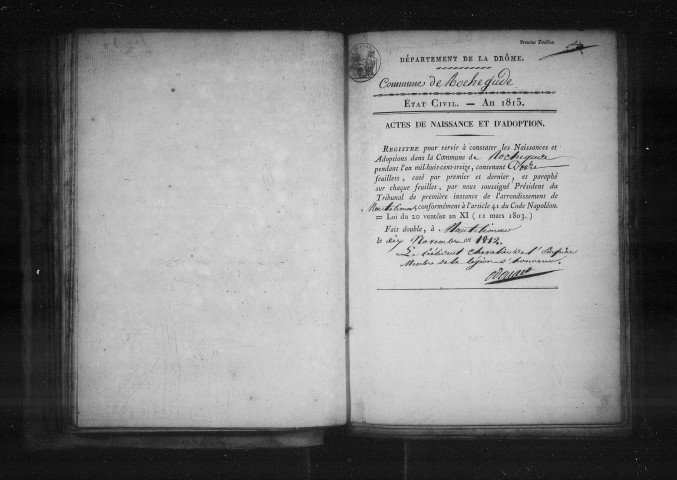 Premier Feuillet.
DÉPARTEMENT DE LA DRÔME.
Commune de Rochegude
ÉTAT CIVIL. — AN 1813.
ACTES DE NAISSANCE ET D'ADOPTION.
REGISTRE pour servir à constater les Naissances et
Adoptions dans la Commune de Rochegude
pendant l'an mil-huit-cent-treize, contenant Douze
feuillets, coté par premier et dernier, et paraphé
sur chaque feuillet, par nous soussigné Président du
Tribunal de première instance de l'arrondissement de
Montelimar conformément à l'article 41 du Code Napoléon.
= Loi du 20 ventôse an XI (11 mars 1803.)
Fait double, à Montelimar
le dix Novembre 1812.
Le Président Chevalier de l'Empire
Membre de la légion d'honneur.